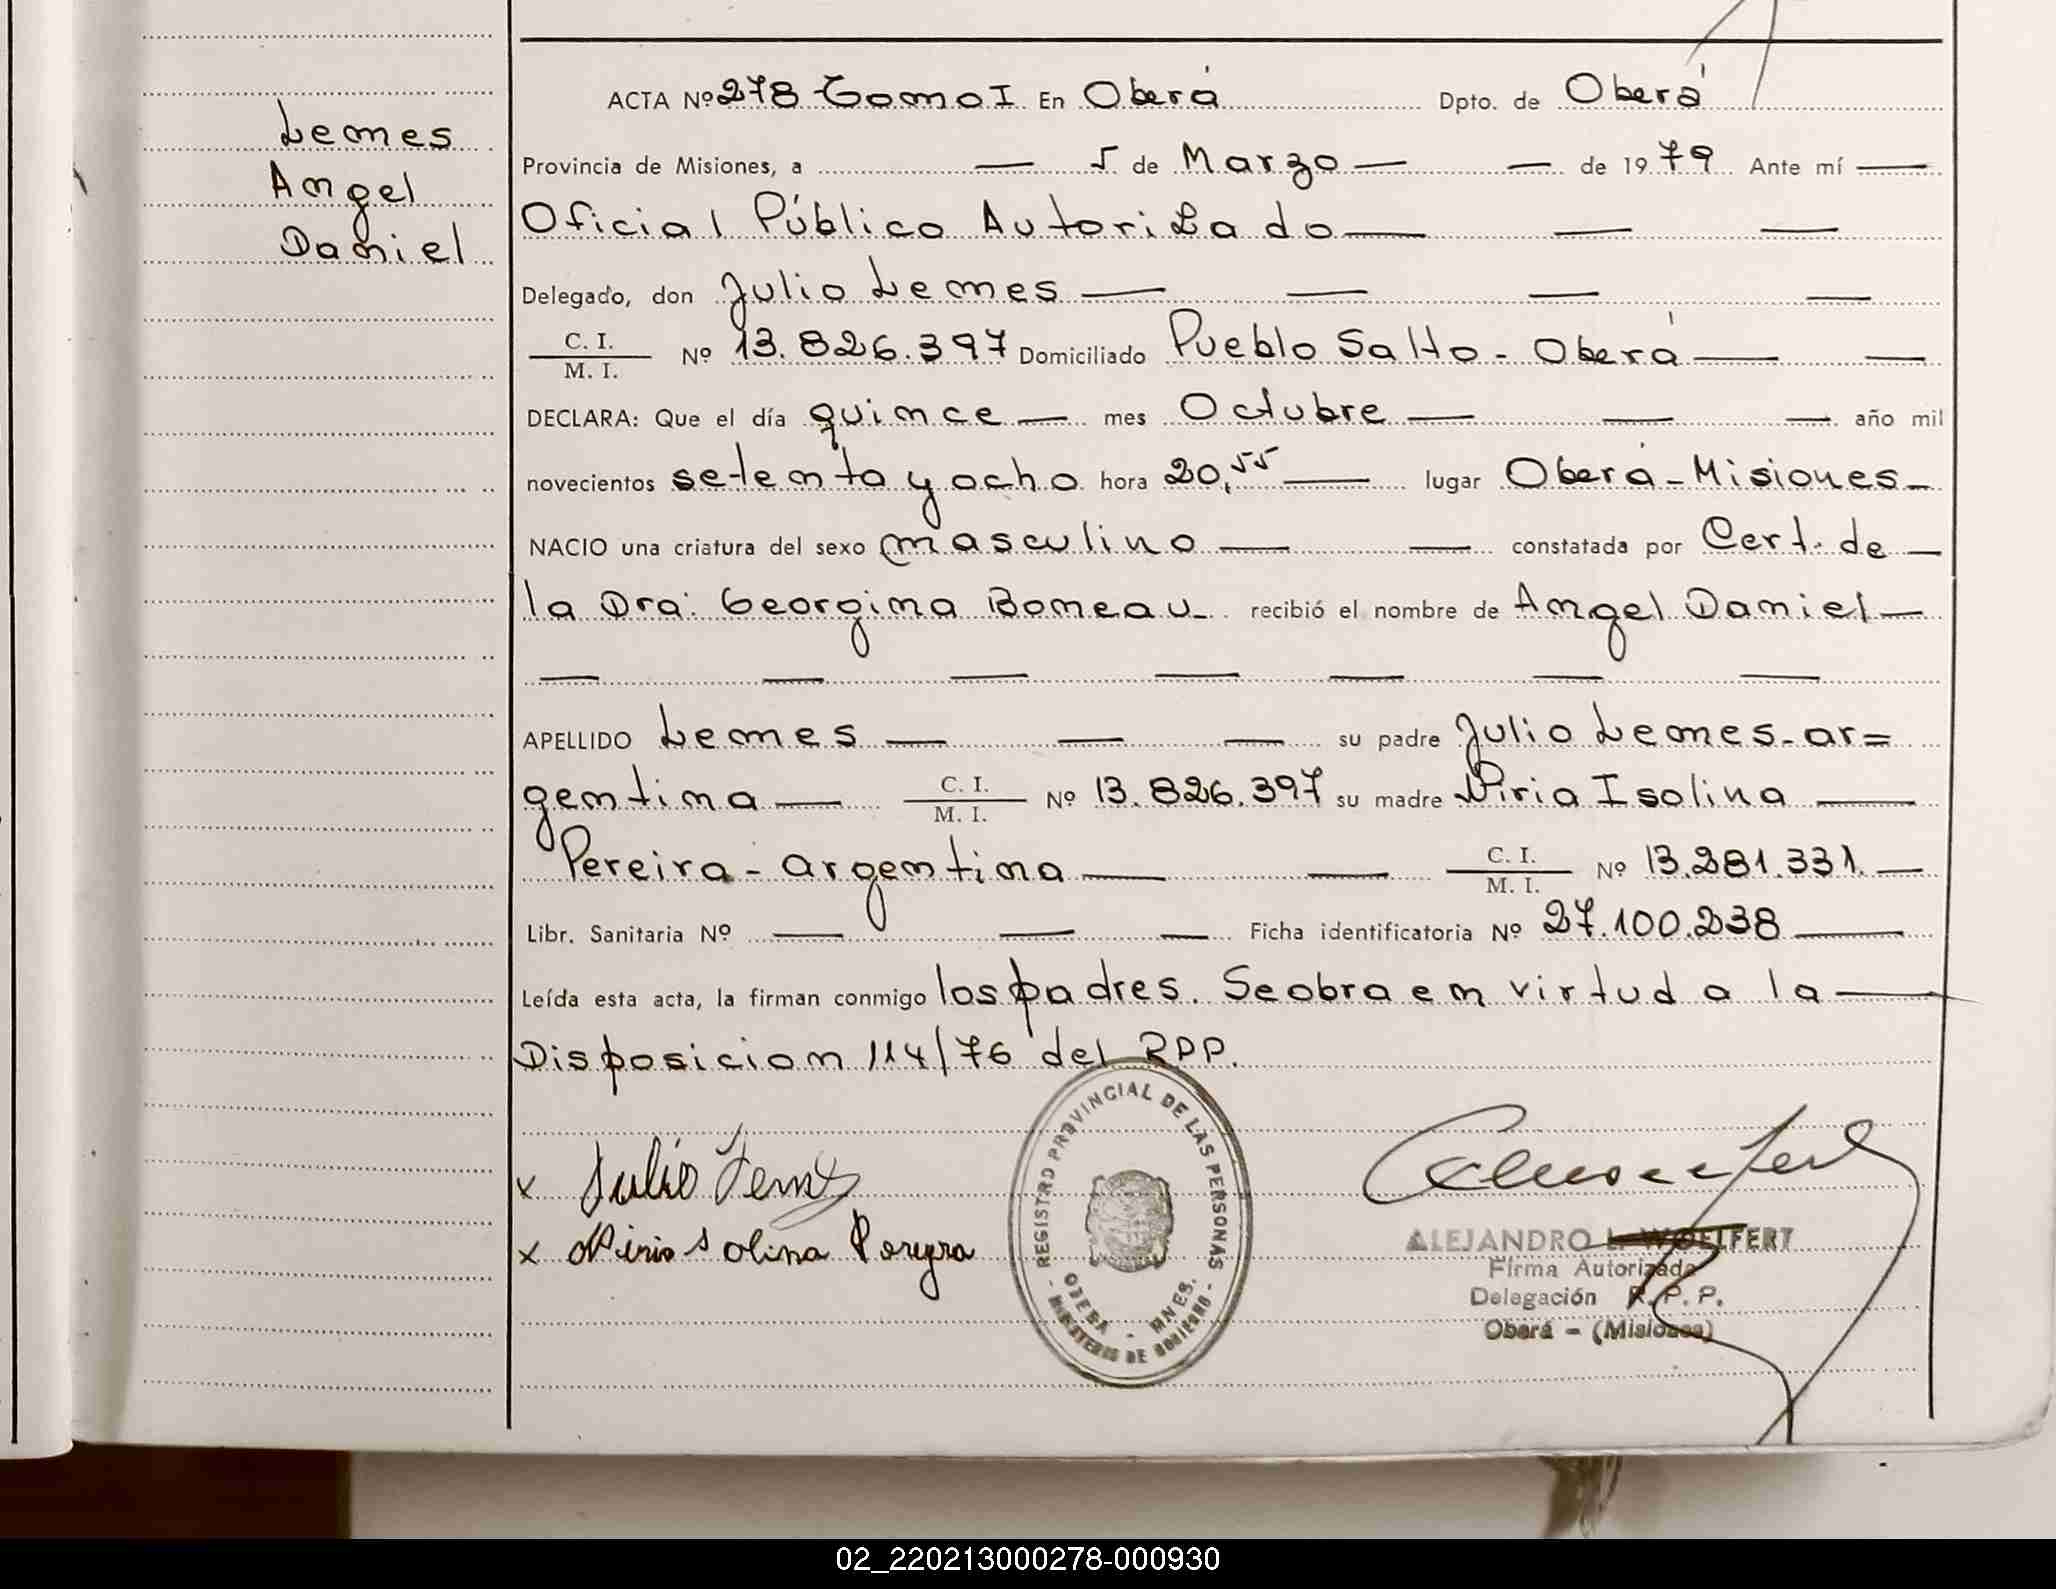 Lemes
Angel
Daniel
ACTA Nº 278 Tomo I En Oberá Dpto. de Oberá
Provincia de Misiones, a — 5 de Marzo — — de 1979 Ante mí —
Oficial Público Autorizado — — —
Delegado, don Julio Lemes — — — —
C. I.
M. I. Nº 13.826.397 Domiciliado Pueblo Salto - Oberá — —
DECLARA: Que el día quince — mes Octubre — — — año mil
novecientos setenta y ocho hora 20,55 — lugar Oberá - Misiones -
NACIO una criatura del sexo masculino — — constatada por Cert. de —
la Dra. Georgina Boneau - recibió el nombre de Angel Daniel —
— — — — — — —
APELLIDO Lemes — — — su padre Julio Lemes - ar=
gentina — C. I. / M. I. Nº 13.826.397 su madre Niria Isolina —
Pereira - argentina — — C. I. / M. I. Nº 13.281.331. —
Libr. Sanitaria Nº — — — Ficha identificatoria Nº 27.100.238 —
Leída esta acta, la firman conmigo los padres. Se obra en virtud a la —
Disposicion 114/76 del RPP.
x Julio Lemes
x Niria Isolina Pereyra
REGISTRO PROVINCIAL DE LAS PERSONAS
- MINISTERIO DE GOBIERNO -
OBERA - MNES.
ALEJANDRO L. WOELFERT
Firma Autorizada
Delegación R. P. P.
Oberá - (Misiones)
02_220213000278-000930